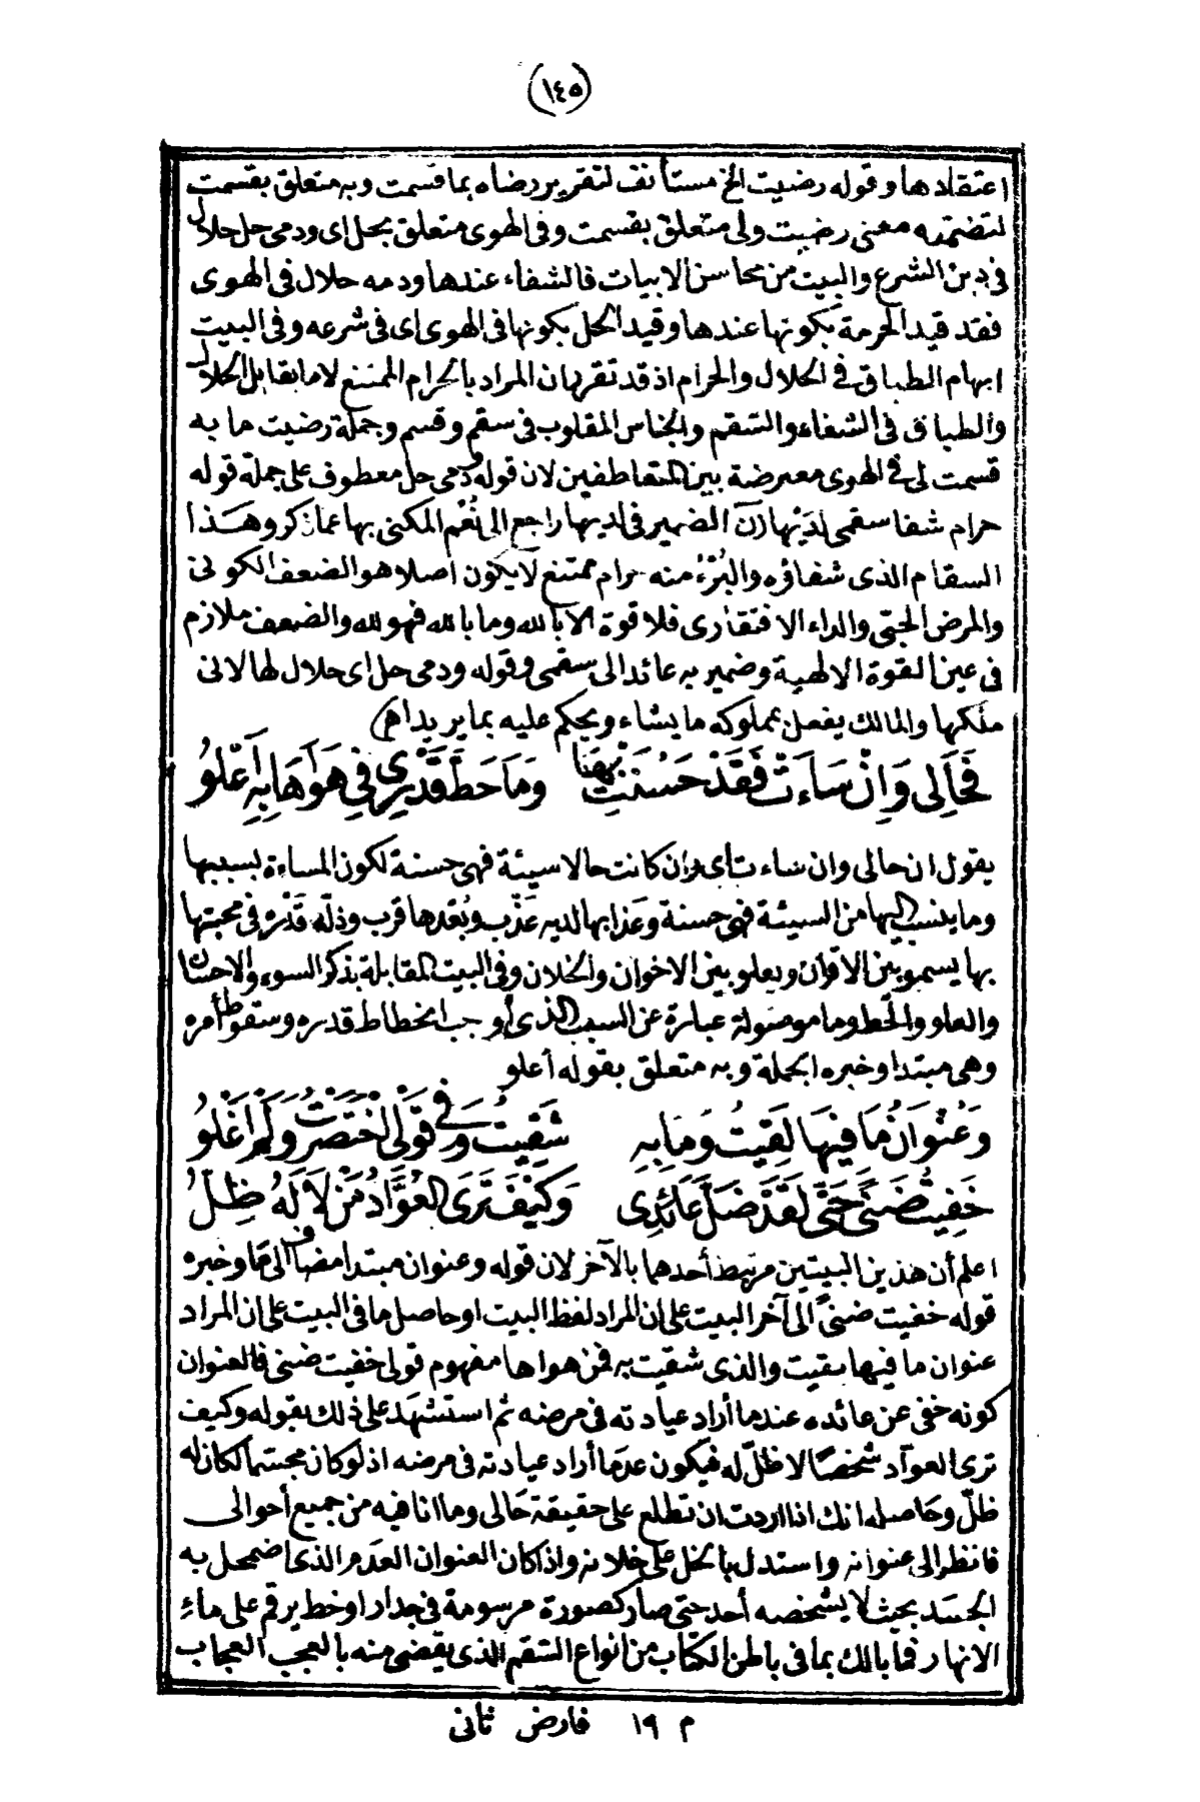 (١٤٥)
اعتقادها وقوله رضيت الخ مستأنف لتقرير رضاه بما قسمت وبه متعلق بقسمت
لتضمنه معنى رضيت ولى متعلق بقسمت وفى الهوى متعلق بحل اى ودمى حل حلال
فى دين الشرع والبيت من محاسن الابيات فالشفاء عندها ودمه حلال فى الهوى
فقد قيد الحرمة بكونها عندها وقيد الحل بكونها فى الهوى اى فى شرعه وفى البيت
ابهام الطباق فى الحلال والحرام اذ قد تقرر ان المراد بالحرام الممتنع لا ما يقابل الحلال
والطباق فى الشفاء والسقم والجناس المقلوب فى سقم وقسم وجملة رضيت ما به
قسمت لى فى الهوى معترضة بين المتعاطفين لان قوله ودمى حل معطوف على جملة قوله
حرام شفا سقمى لديها (ن) الضمير فى لديها راجع الى نُعْم المكنى بها عما ذكر وهذا
السقام الذى شفاؤه والبُرْءُ منه حرام ممتنع لا يكون أصلا هو الضعف الكونى
والمرض الجبتى والداء الافتقارى فلا قوة الا بالله وما بالله فهو لله والضعف ملازم
فى عين القوة الالهية وضمير به عائد الى سقمى وقوله ودمى حل اى حلال لها لانى
ملكها والمالك يفعل بمملوكه ما يشاء ويحكم عليه بما يريد اه)
فَحَالِى وَإِنْ سَاءَتْ فَقَدْ حَسُنَتْ بِهَا وَمَا حَطَّ قَدْرِى فِى هَوَاهَا بِهِ أَعْلُو
يقول ان حالى وان ساءت أى وان كانت حالا سيئة فهى حسنة لكون المساءة بسببها
وما ينسب اليها من السيئة فهى حسنة وعذابها لديه عَذْب وبُعْدها قرب وذلّه قَدْره فى محبتها
بها يسمو بين الاقران ويعلو بين الاخوان والخلان وفى البيت المقابلة بذكر السوء والاحسان
والعلو والحَط وما موصولة عبارة عن السبب الذى أوجب انحطاط قدره وسقوط أمره
وهى مبتدا وخبره الجملة وبه متعلق بقوله أعلو
وَعُنْوَانُ مَا فِيهَا لَقِيتُ وَمَا بِهِ شَقِيتُ وَفِى قَوْلِى اخْتَصَرْتُ وَلَمْ أَغْلُو
خَفِيتُ ضَنًى حَتَّى لَقَدْ ضَلَّ عَائِدِى وَكَيْفَ تَرَى الْعُوَّادُ مَنْ لَا لَهُ ظِلُّ
اعلم أن هذين البيتين مرتبط أحدهما بالآخر لان قوله وعنوان مبتدا مضاف الى ما وخبره
قوله خفيت ضنىً الى آخر البيت على ان المراد لفظ البيت او حاصل ما فى البيت على ان المراد
عنوان ما فيها لقيت والذى شقيت به فمن هواها مفهوم قولى خفيت ضنى فالعنوان
كونه خفى عن عائده عندما أراد عيادته فى مرضه ثم استشهد على ذلك بقوله وكيف
ترى العوّاد شخصًا لا ظلّ له فيكون عدما أراد عيادته فى مرضه اذ لو كان مجسّما لكان له
ظلّ وحاصله انك اذا اردت ان تطلع على حقيقة حالى وما انا فيه من جميع أحوالى
فانظر الى عنوانه واستدل بالخل على خلانه واذا كان العنوان العدم الذى اضمحل به
الجسد بحيث لا يشخصه أحد حتى صار كصورة مرسومة فى جدار او خط يرقم على ماء
الانهار فما بالك بما فى باطن الكتاب من انواع السقم الذى يقضى منه بالعجب العجاب
م ١٩ فارض ثانى